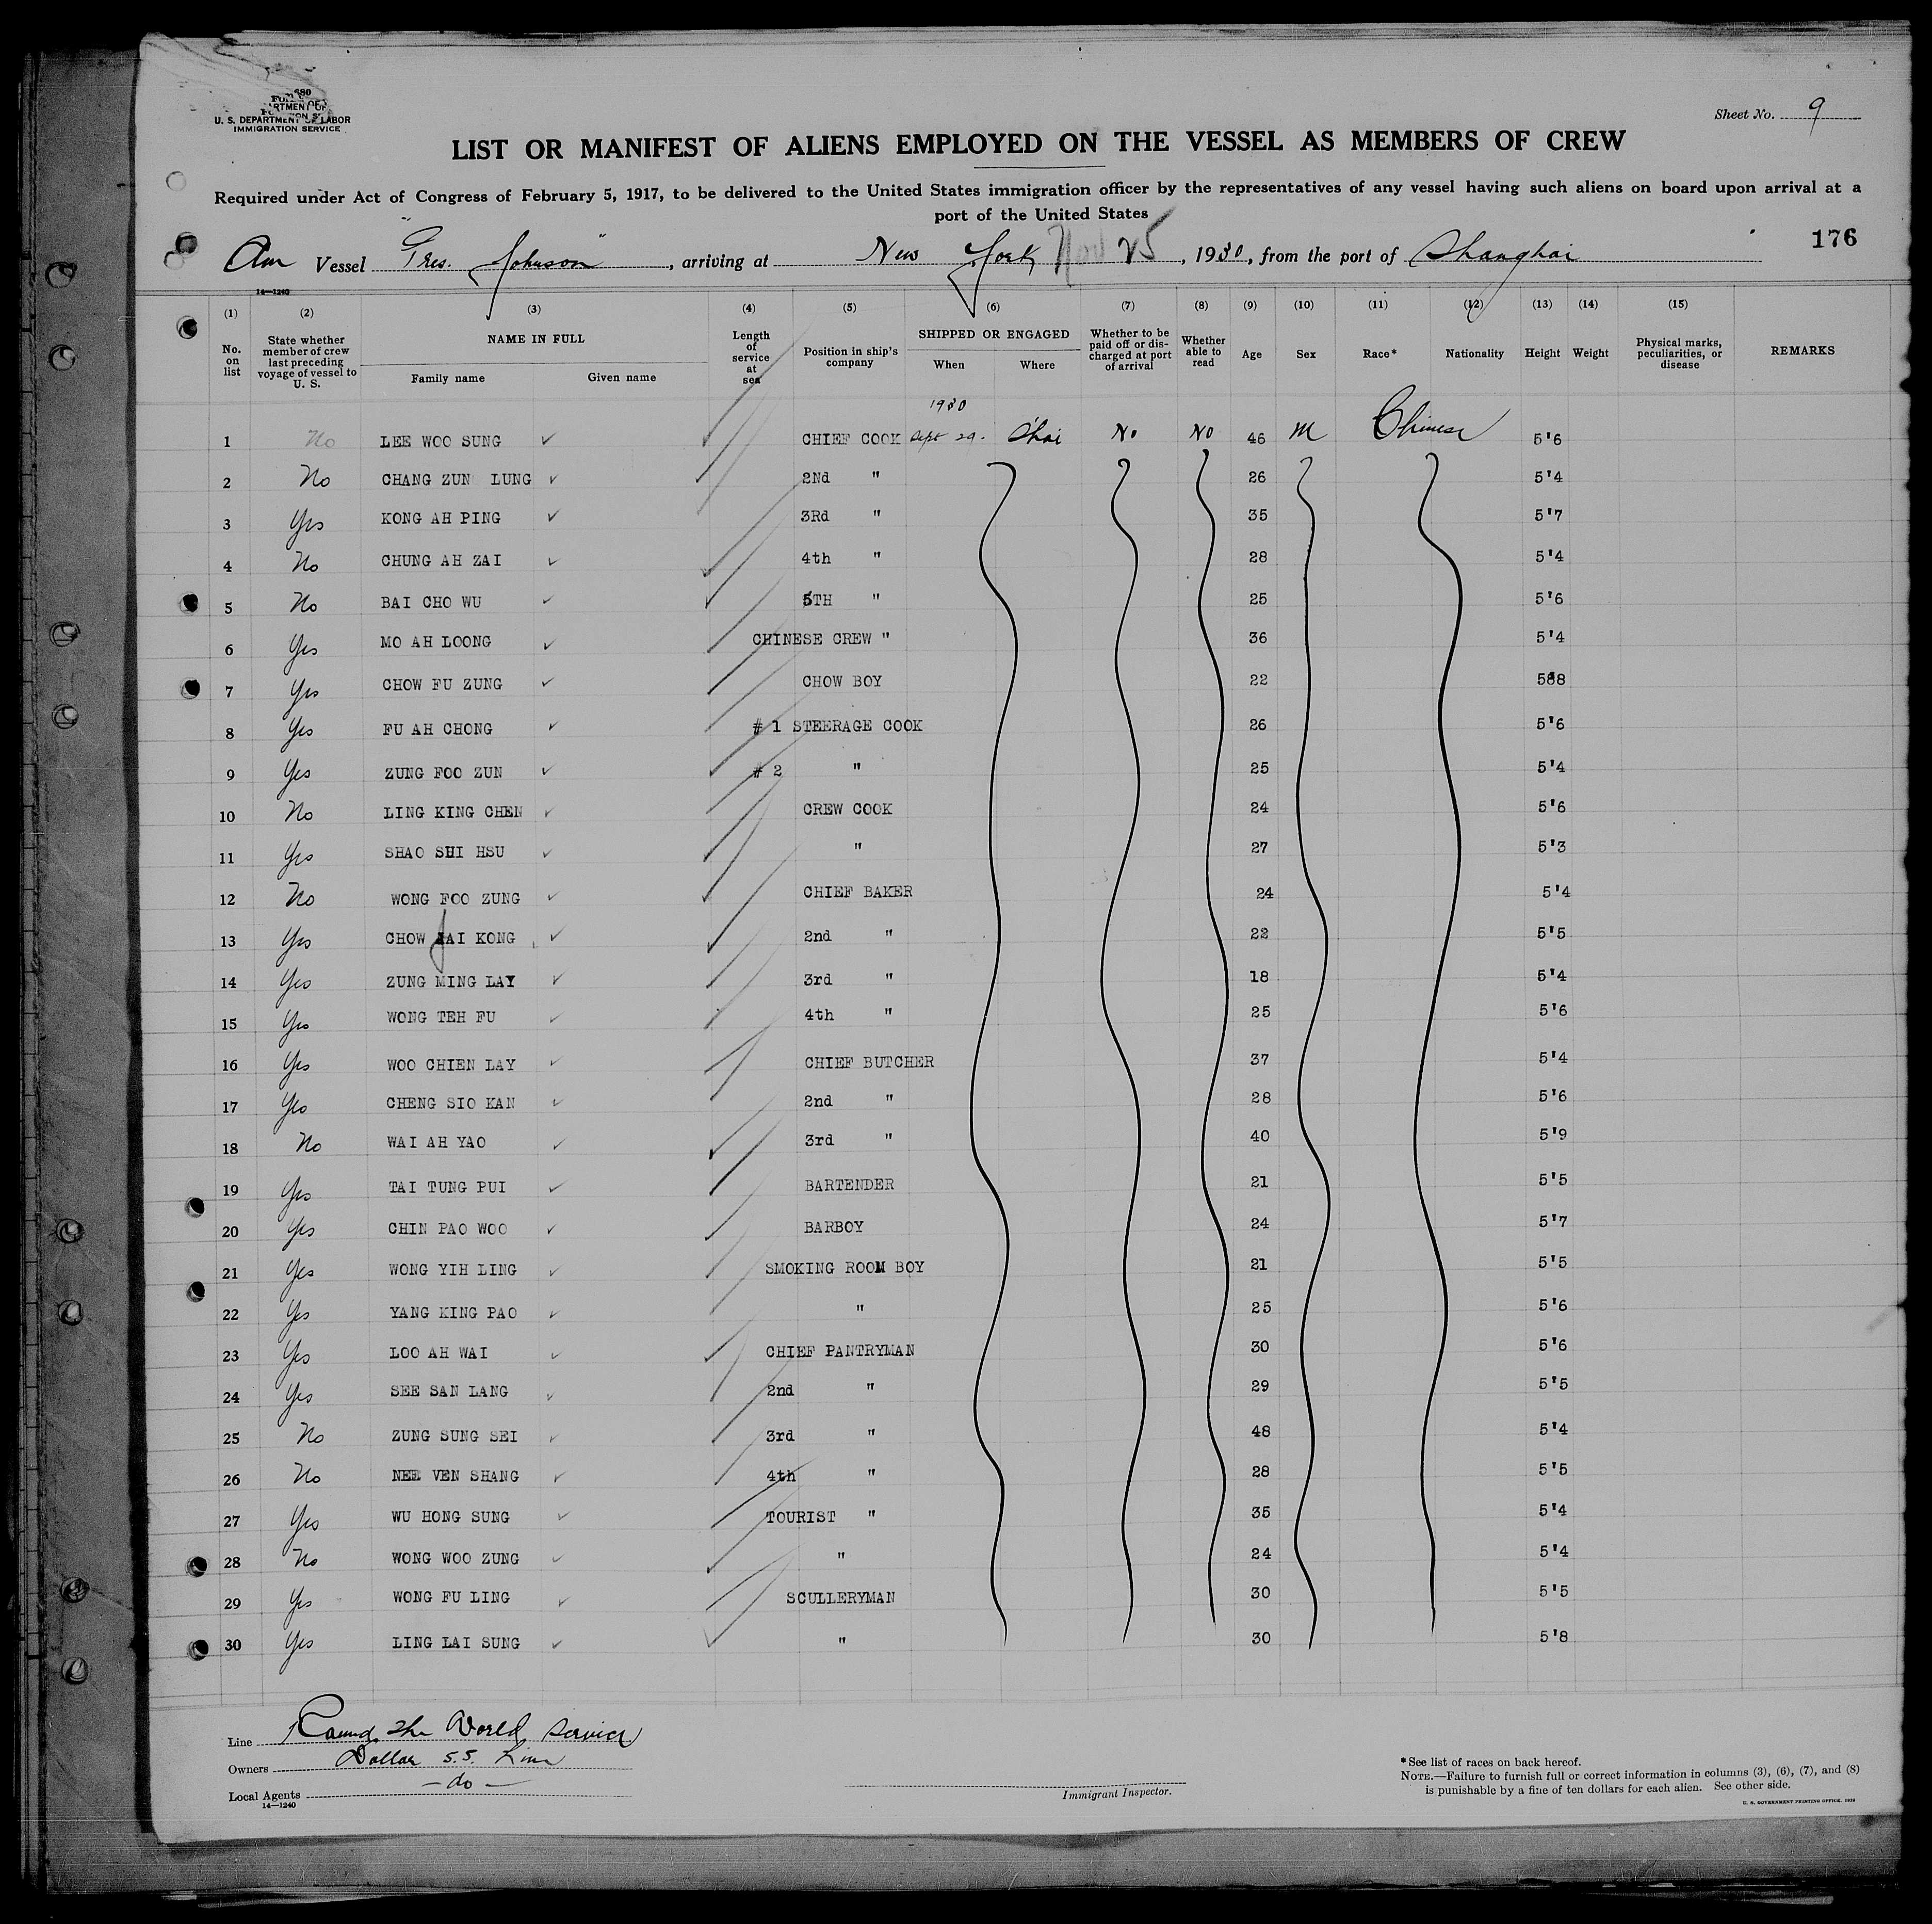 680
U. S. DEPARTMENT OF LABOR
IMMIGRATION SERVICE
Sheet No. 9
LIST OR MANIFEST OF ALIENS EMPLOYED ON THE VESSEL AS MEMBERS OF CREW
Required under Act of Congress of February 5, 1917, to be delivered to the United States immigration officer by the representatives of any vessel having such aliens on board upon arrival at a
port of the United States
176
Am Vessel "Pres. Johnson", arriving at New York Nov 25, 1930, from the port of Shanghai
14—1240
(1) (2) (3) (4) (5) (6) (7) (8) (9) (10) (11) (12) (13) (14) (15)
No. on list State whether member of crew last preceding voyage of vessel to U. S. NAME IN FULL Length of service at sea Position in ship's company SHIPPED OR ENGAGED Whether to be paid off or discharged at port of arrival Whether able to read Age Sex Race* Nationality Height Weight Physical marks, peculiarities, or disease REMARKS
Family name Given name When Where
1930
1 No LEE WOO SUNG CHIEF COOK Sept 29. S'hai No No 46 M Chinese 5'6
2 No CHANG ZUN LUNG 2Nd " 26 5'4
3 Yes KONG AH PING 3Rd " 35 5'7
4 No CHUNG AH ZAI 4th " 28 5'4
5 No BAI CHO WU 5TH " 25 5'6
6 Yes MO AH LOONG CHINESE CREW " 36 5'4
7 Yes CHOW FU ZUNG CHOW BOY 22 5'8
8 Yes FU AH CHONG # 1 STEERAGE COOK 26 5'6
9 Yes ZUNG FOO ZUN # 2 " 25 5'4
10 No LING KING CHEN CREW COOK 24 5'6
11 Yes SHAO SHI HSU " 27 5'3
12 No WONG FOO ZUNG CHIEF BAKER 24 5'4
13 Yes CHOW JAI KONG 2nd " 22 5'5
14 Yes ZUNG MING LAY 3rd " 18 5'4
15 Yes WONG TEH FU 4th " 25 5'6
16 Yes WOO CHIEN LAY CHIEF BUTCHER 37 5'4
17 Yes CHENG SIO KAN 2nd " 28 5'6
18 No WAI AH YAO 3rd " 40 5'9
19 Yes TAI TUNG PUI BARTENDER 21 5'5
20 Yes CHIN PAO WOO BARBOY 24 5'7
21 Yes WONG YIH LING SMOKING ROOM BOY 21 5'5
22 Yes YANG KING PAO " 25 5'6
23 Yes LOO AH WAI CHIEF PANTRYMAN 30 5'6
24 Yes SEE SAN LANG 2nd " 29 5'5
25 No ZUNG SUNG SEI 3rd " 48 5'4
26 No NEE VEN SHANG 4th " 28 5'5
27 Yes WU HONG SUNG TOURIST " 35 5'4
28 No WONG WOO ZUNG " 24 5'4
29 Yes WONG FU LING SCULLERYMAN 30 5'5
30 Yes LING LAI SUNG " 30 5'8
Line Round The World Service
Owners Dollar S.S. Line
Local Agents — do —
14—1240
Immigrant Inspector.
*See list of races on back hereof.
NOTE.—Failure to furnish full or correct information in columns (3), (6), (7), and (8)
is punishable by a fine of ten dollars for each alien. See other side.
U. S. GOVERNMENT PRINTING OFFICE.